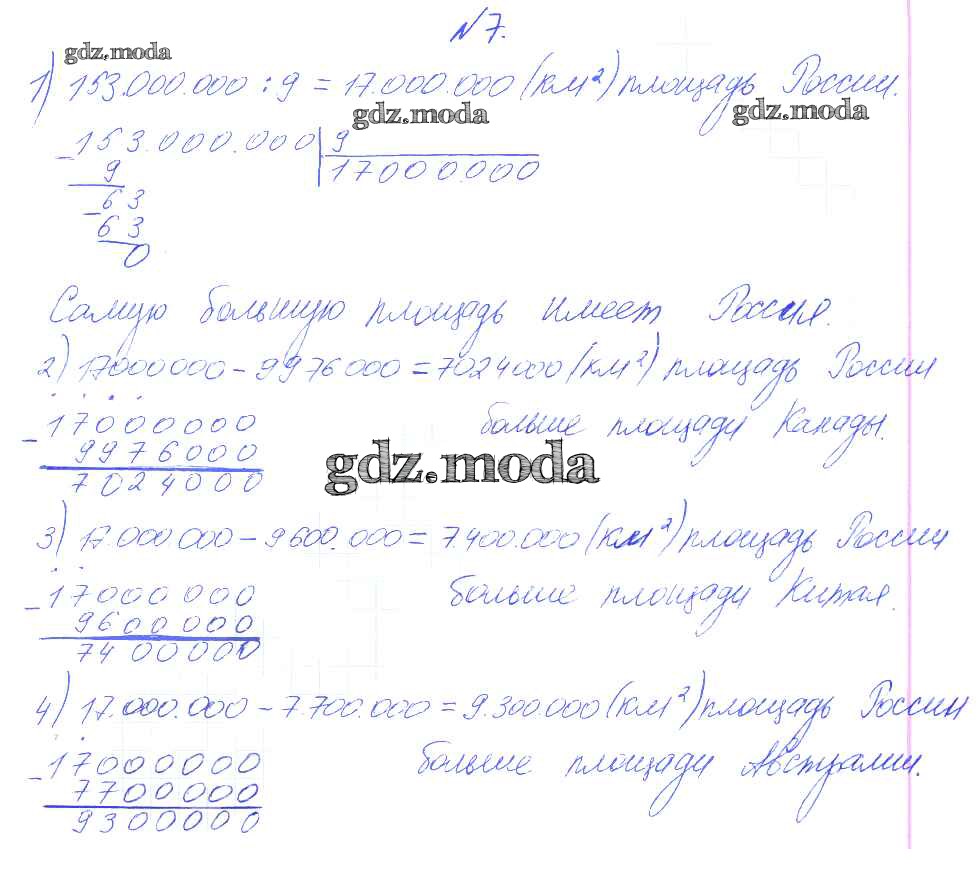 № 7.
gdz.moda
1) 153.000.000 : 9 = 17.000.000 (км²) площадь России.
gdz.moda gdz.moda
- 153.000.000 | 9
9 17000.000
- 63
63
0
Самую большую площадь имеет Россия.
2) 17000000 - 9976000 = 7024000 (км²) площадь России
- 17000000 больше площади Канады.
9976000
gdz.moda
7024000
3) 17.000000 - 9600.000 = 7.400.000 (км²) площадь России
- 17000000 больше площади Китая.
9600000
7400000
4) 17.000.000 - 7.700.000 = 9.300.000 (км²) площадь России
- 17000000 больше площади Австралии.
7700000
9300000